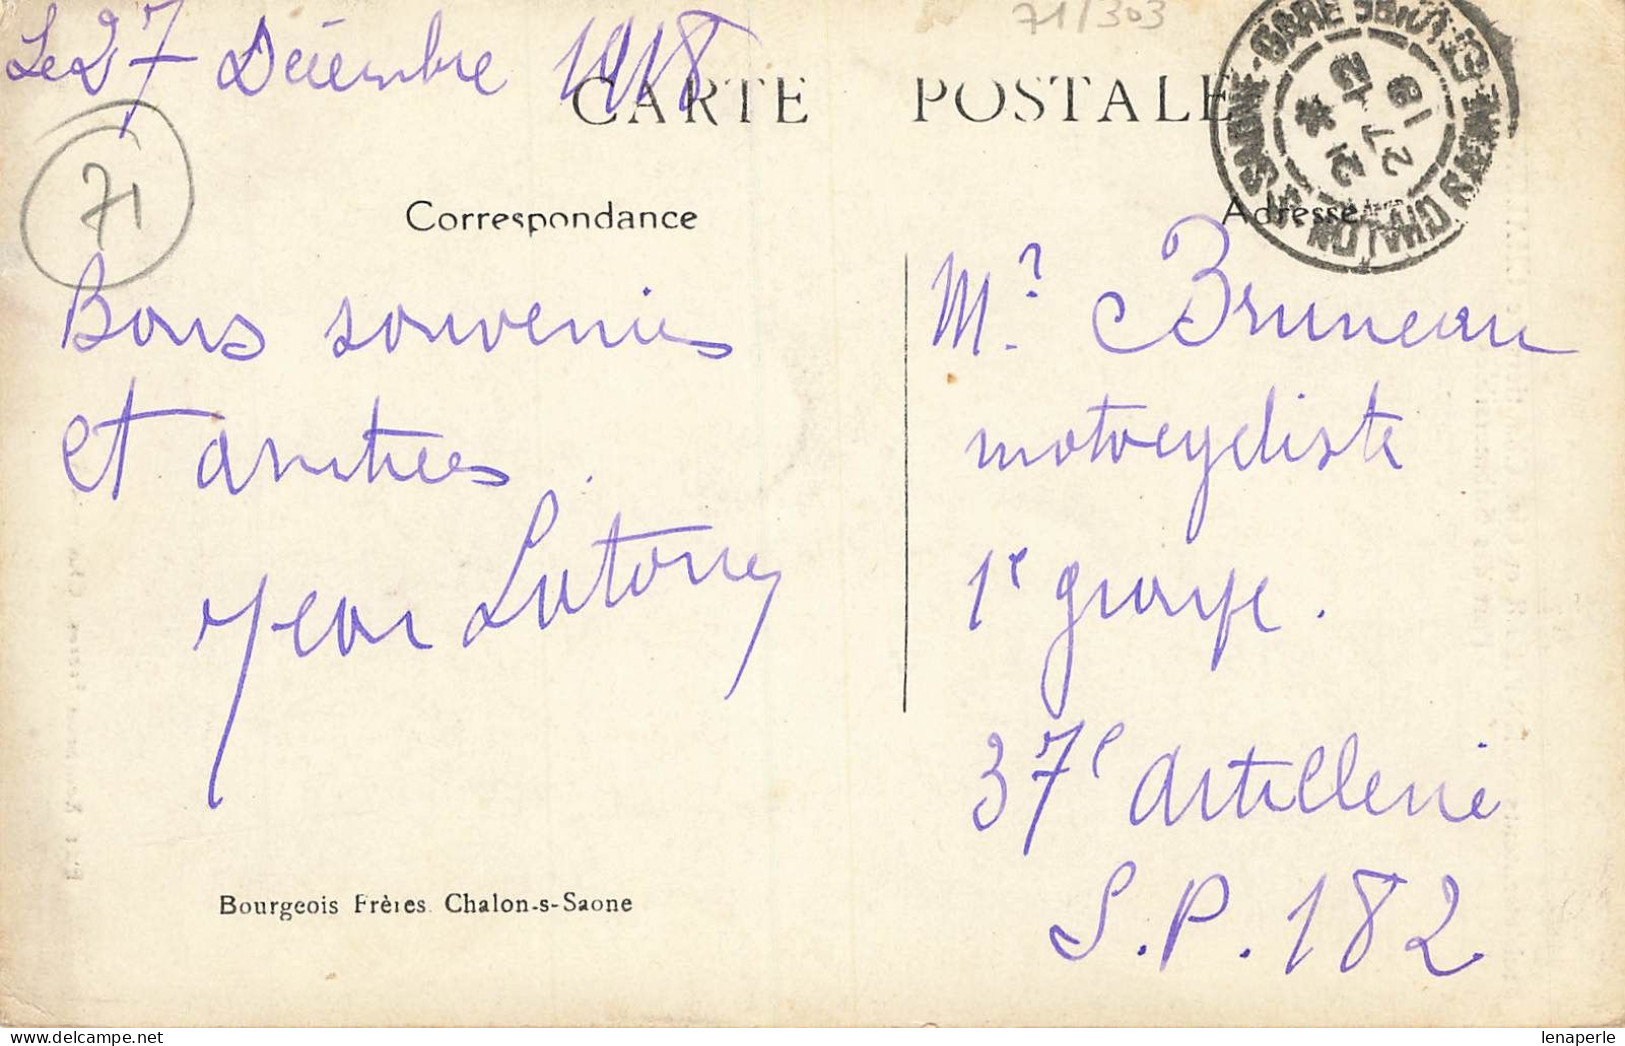 Le 27 Décembre 1918
71/303
CARTE POSTALE
71
Correspondance
Adresse
CHALON S SAONE-GARE
27 12
Bons souvenirs
et amitiées.
Jean
M.r Bruneau
motocycliste
1e groupe.
37e artillerie
S.P. 182
Bourgeois Frères. Chalon-s-Saone
lenaperle